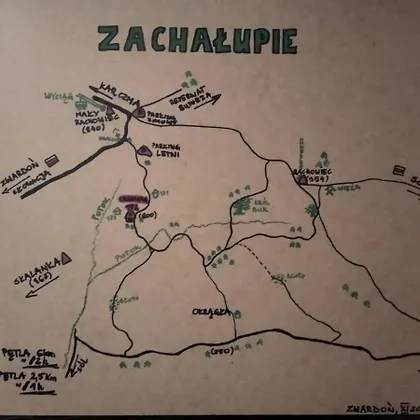 ZACHAŁUPIE
WYCIĄG
KARCZMA
REZERWAT
MAŁY
RACHOWIEC
(840)
PARKING
ZIMOWY
PARKING
LETNI
ZWARDOŃ
SŁOWACJA
RACHOWIEC
(954)
WIEŻA
(800)
BUK
POTOK
POTOK
SKALANKA
(867)
OKRĄGŁA
(550)
PĘTLA 6km
"/2h
PĘTLA 2,5km
"/1h
ZWARDOŃ, XI